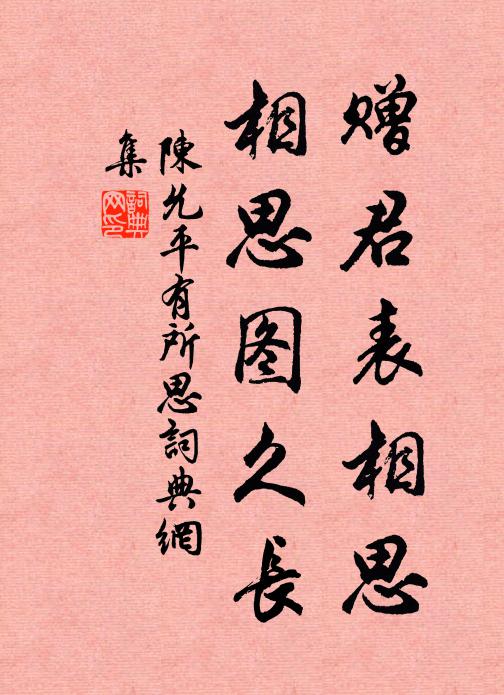 赠君表相思
相思图久長
陳允平有所思詞典網
集
詞典
网印